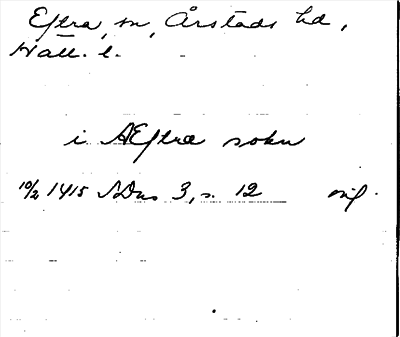 Eftra, sn, Årstads hd,
Hall. l.
i Æftræ sokn
10/2 1415 SDns 3, s. 12 orig.